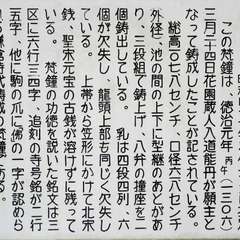 この梵鐘は、徳治元年丙午(一三〇六)
三月二十四日花園蔵人入道能丹が願主と
なって鋳成したことが記されている。
総高一〇七八センチ、口径六八センチ
外径)、池の間の上下に型継のとがあ
り、三段組で鋳上げ、八弁の撞座を二
個鋳出している。乳は四段四列、六
個が欠失し、龍頭上部も同じく欠失し
ている。上帯から笠形にかけて北宋
銭、聖宋元宝の古銭が溶けずに残って
区に六行三四字、追刻の寺号銘が二行
五字、他に駒の爪に佛の一字が認めら